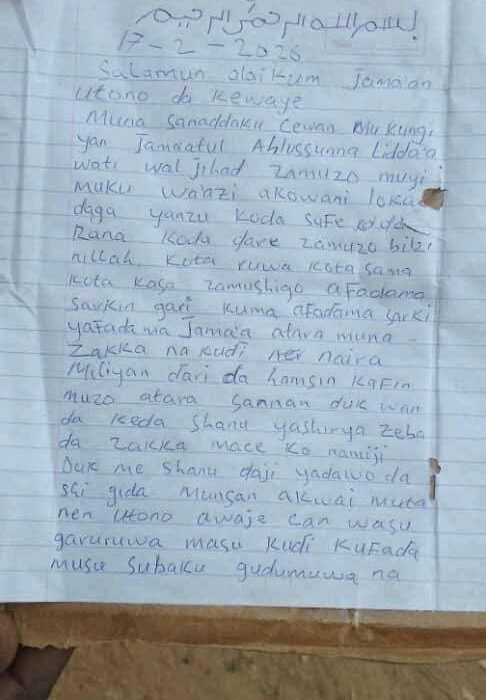 بسم الله الرحمن الرحيم
17-2-2026
Salamun alaikum Jama'an
utono da kewaye
Muna sanaddaku cewan Mu kungi
yan Jamaatul Ahlussunna Lidda'a
wati wal jihad zamuzo muyi
muku wa'azi akowani loka
daga yanzu koda safe koda
Rana koda dare zamuzo bibi
nillah kota ruwa kota sama
kota kasa zamushigo afadama
sarkin gari kuma afadama sarki
yafada ma Jama'a atara muna
Zakka na kudi naira
Miliyan dari da hamsin kafin
muzo atara sannan duk wan
da keda shanu yashirya zeba
da zakka mace ko namiji
Duk me shanu daji yadawo da
shi gida Munsan akwai muta
nen utono awaje can wasu
garuruwa masu kudi kufada
musu subaku gudumuwa na